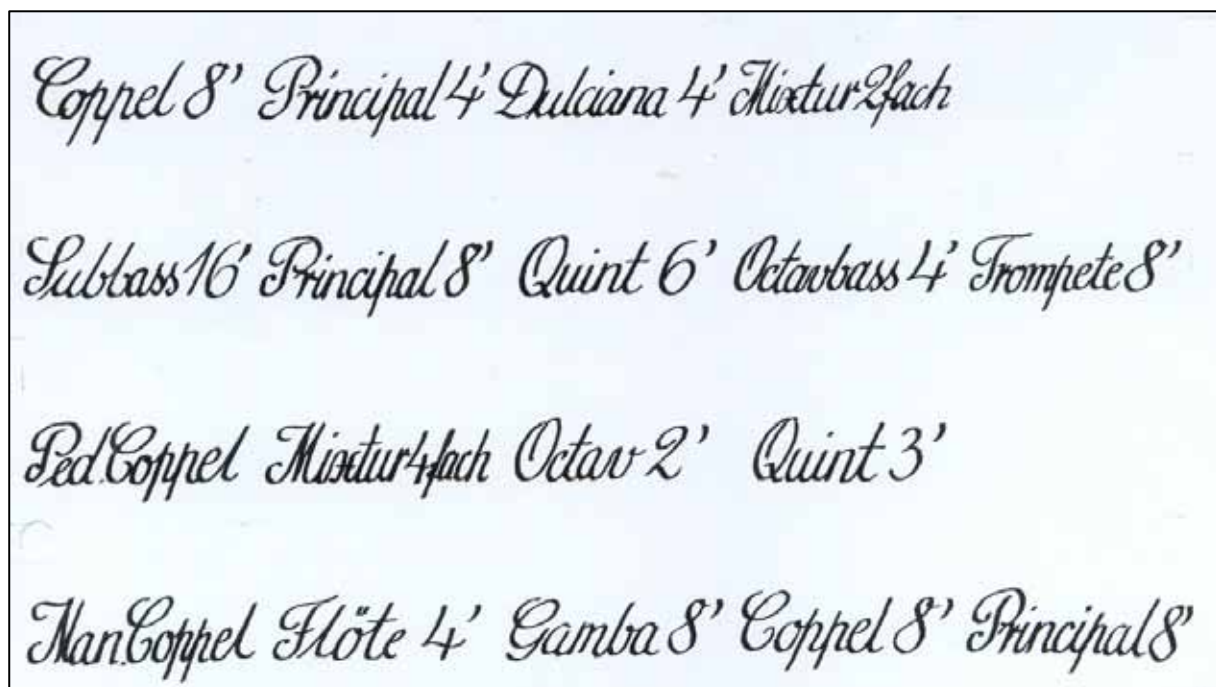 Coppel 8' Principal 4' Dulciana 4' Mixtur 2fach
Subbass 16' Principal 8' Quint 6' Octavbass 4' Trompete 8'
Ped.Coppel Mixtur 4fach Octav 2' Quint 3'
Man.Coppel Flöte 4' Gamba 8' Coppel 8' Principal 8'